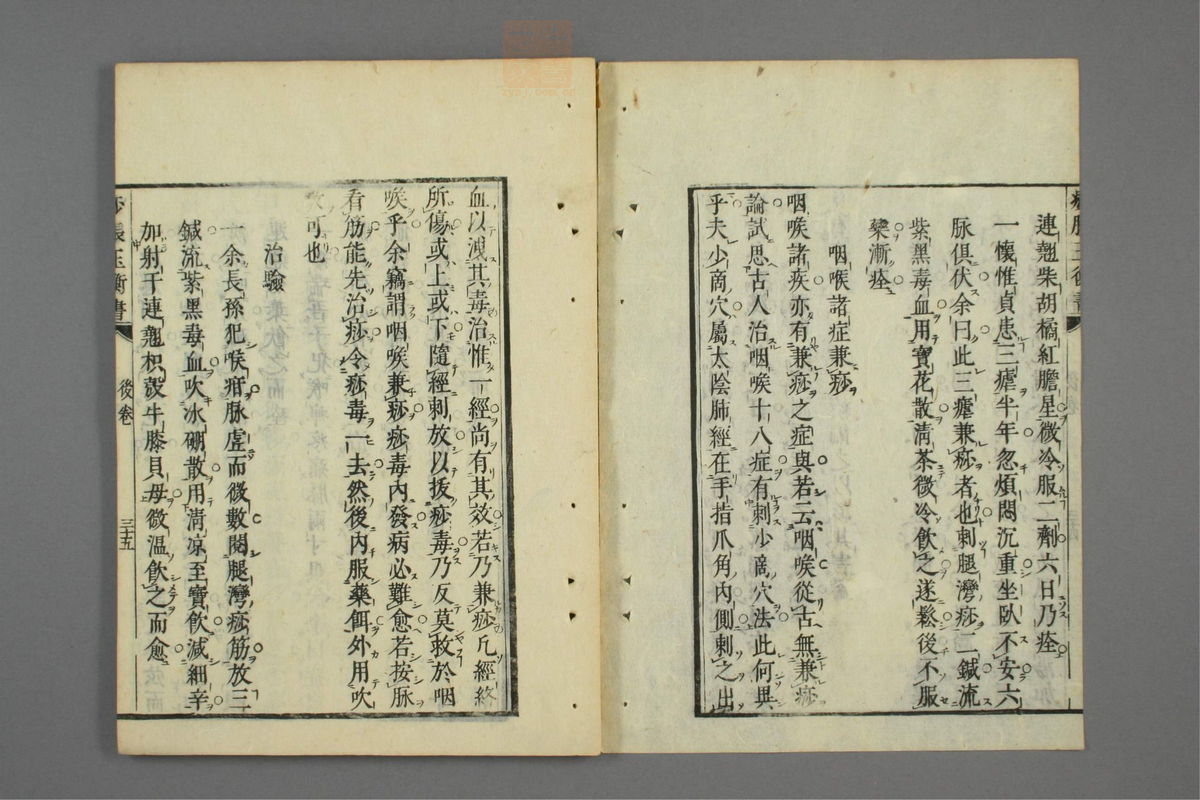 連翹柴胡橘紅膽星微冷服二劑六日乃痊
一懷惟貞患三瘧半年忽煩悶沉重坐臥不安六
脉俱伏余曰此三瘧兼痧者也刺腿灣痧二鍼流
紫黑毒血用寶花散清茶微冷飲之遂鬆後不服
藥漸痊
咽喉諸症兼痧
咽喉諸疾亦有兼痧之症與若云咽喉從古無兼痧
論試思古人治咽喉十八症有刺少商穴法此何異
乎夫少商穴屬太陰肺經在手指爪角內側刺之出
血以洩其毒治惟一經尚有其效若乃兼痧凡經終
所傷或上或下隨經刺放以拔痧毒乃反莫救於咽
喉乎余竊謂咽喉兼痧痧毒內發病必難愈若按脉
看筋能先治痧令痧毒一去然後內服藥餌外用吹
可也
治驗
一余長孫犯喉疳脉虛而微數閱腿灣痧筋放三
鍼流紫黑毒血吹冰硼散用清凉至寶飲減細辛
加射干連翹枳殼牛膝貝母微溫飲之而愈
痧脹玉衡書
後卷
三十五